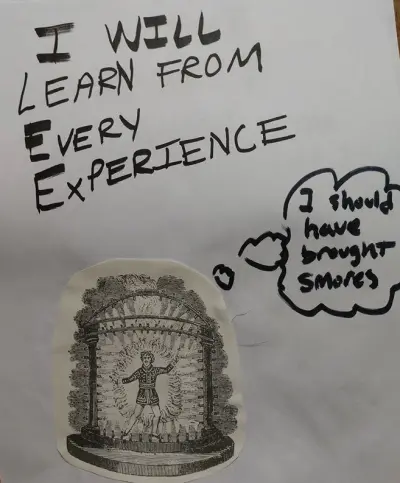 I WILL
LEARN FROM
EVERY
EXPERIENCE
I should
have
brought
smores